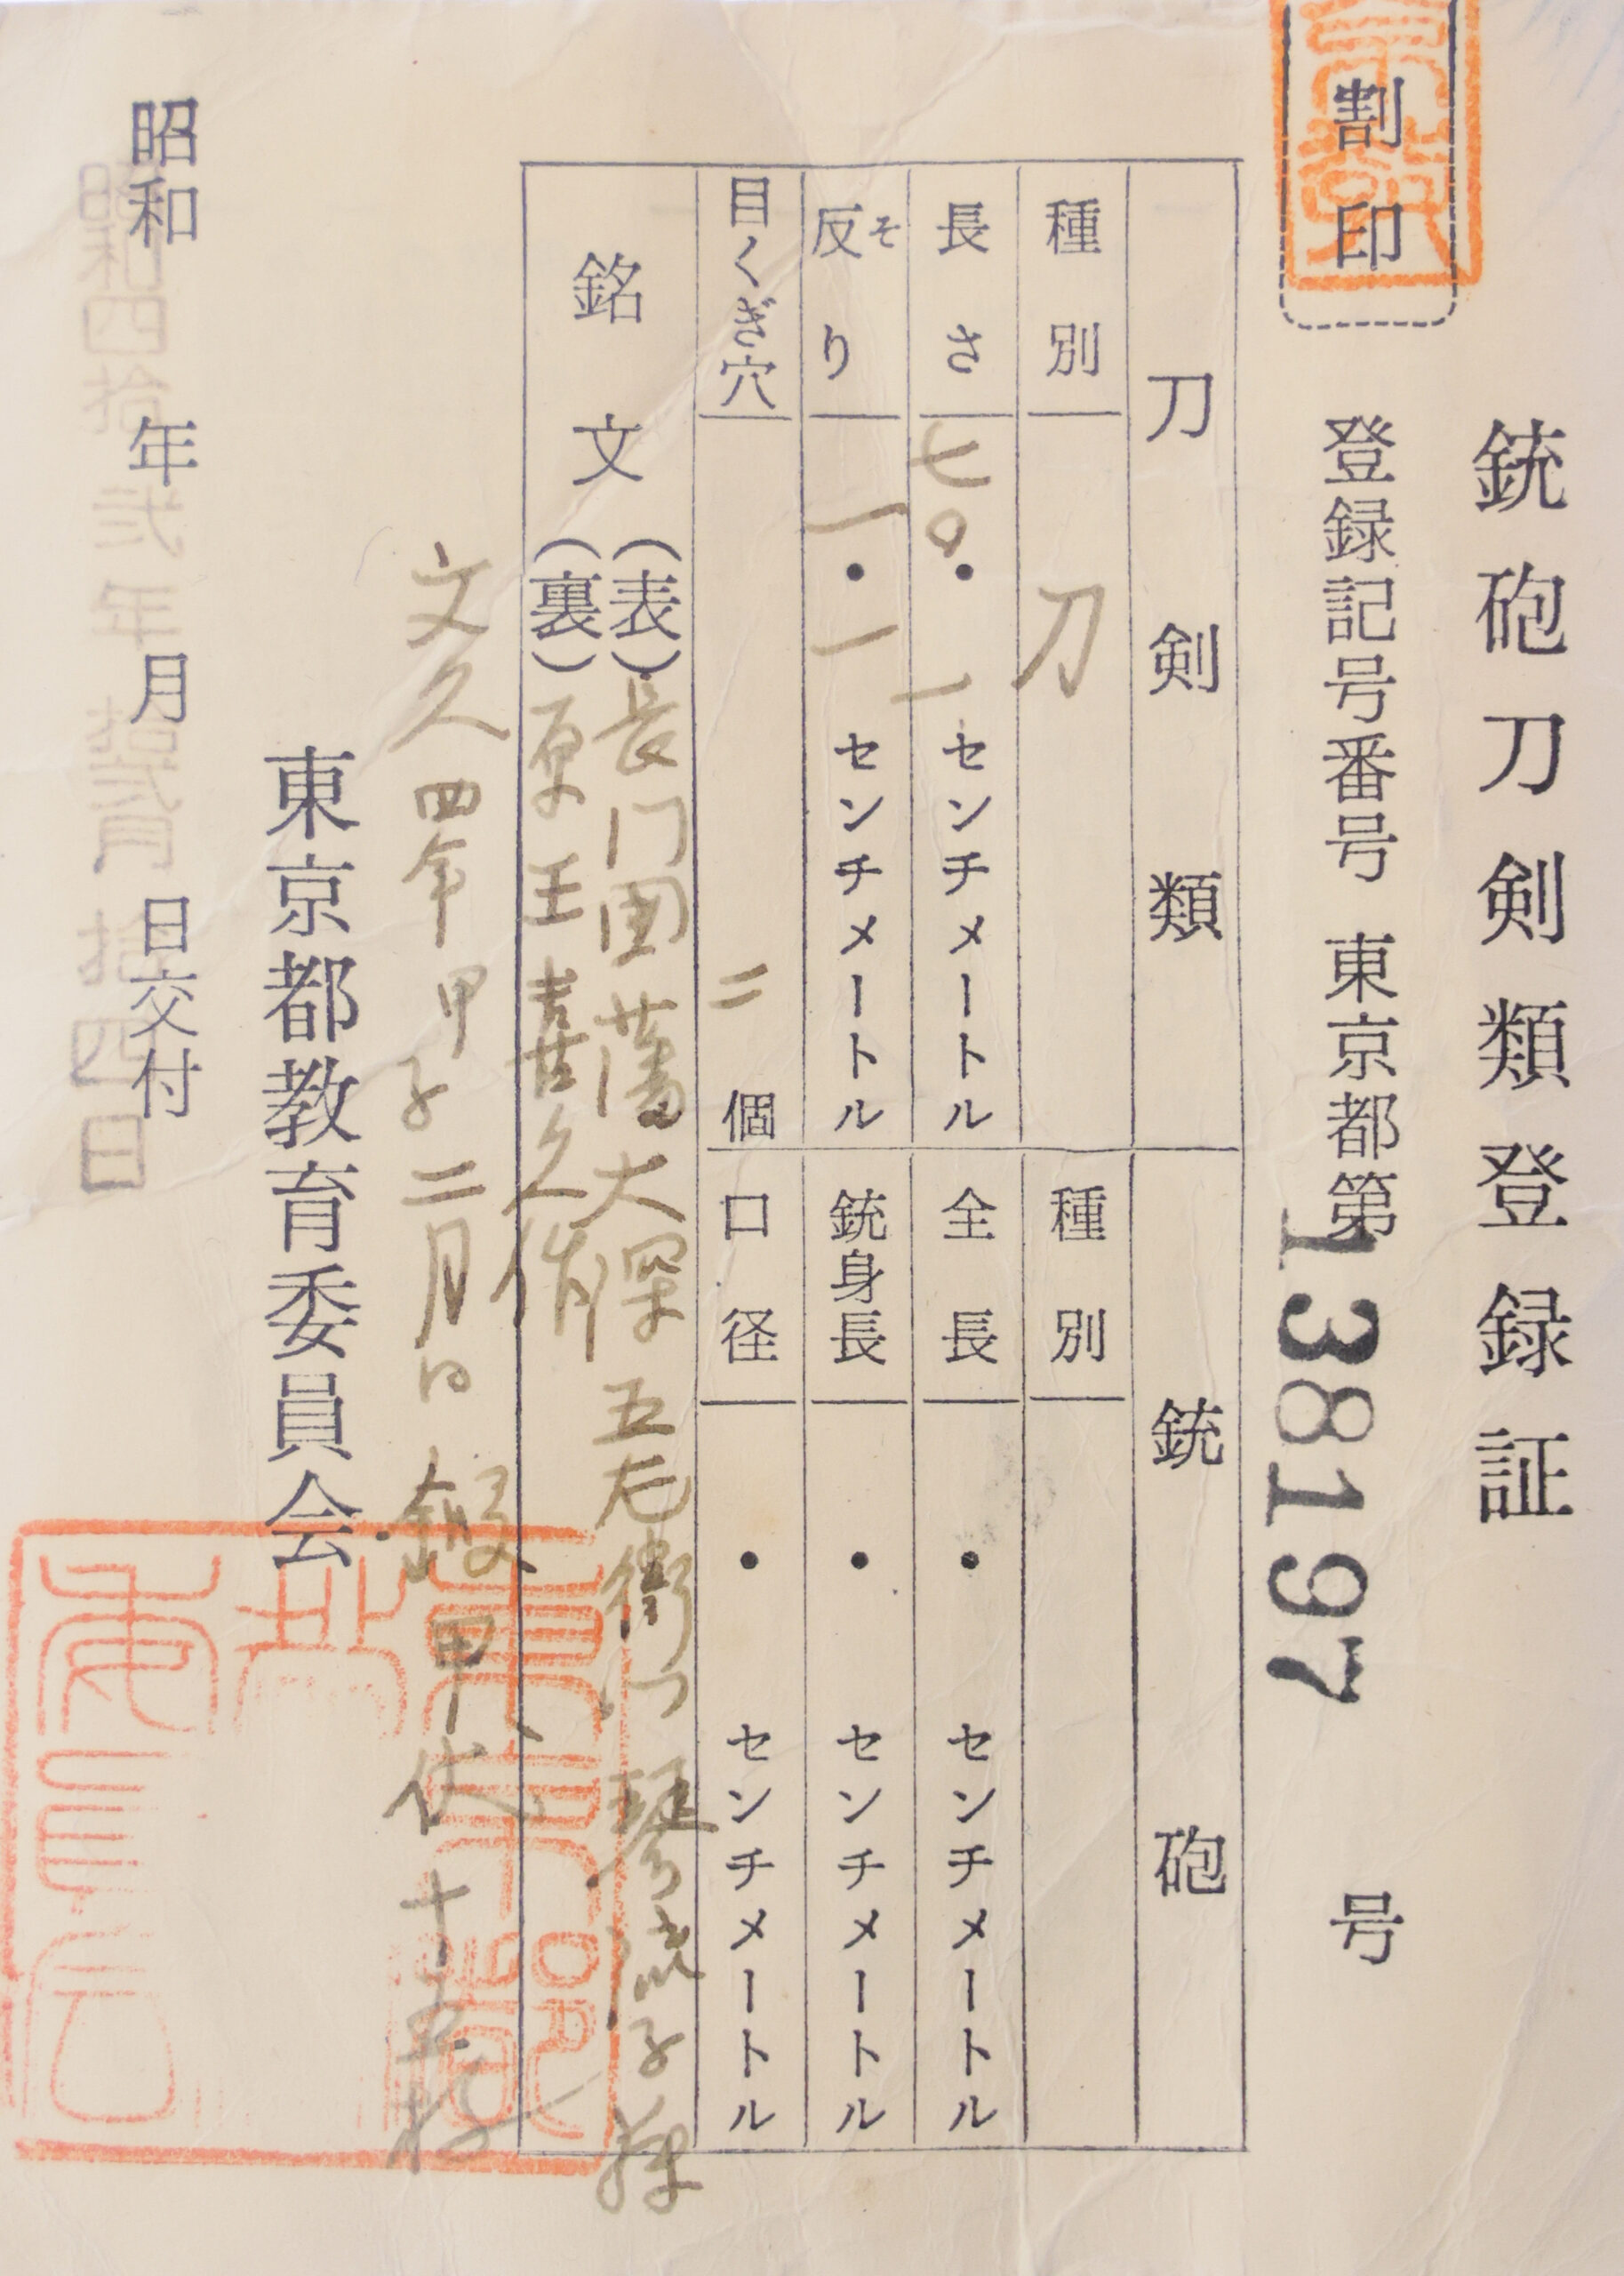 銃砲刀剣類登録証
割印
登録記号番号 東京都第138197号
刀剣類
銃砲
種別 刀
種別
長さ 七〇・一センチメートル
全長 ・ センチメートル
反り そ 一・一センチメートル
銃身長 ・ センチメートル
目くぎ穴 二個
口径 ・ センチメートル
銘文
(表) 長門国藩大深五左衛門琴流子孫
(裏) 原王喜久作
文久四年甲子二月日 鍛甲伏十五枚
東京都教育委員会
昭和 年 月 日交付
昭和四拾弐年拾弐月拾四日